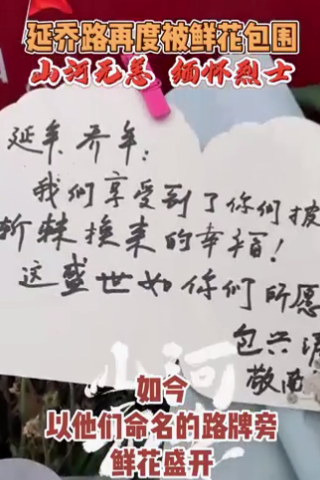 延乔路再度被鲜花包围
山河无恙 缅怀烈士
延年 乔年:
我们享受到了你们披
斩棘换来的幸福!
这盛世如你们所愿
包兴
敬
山河
如今
以他们命名的路牌旁
鲜花盛开